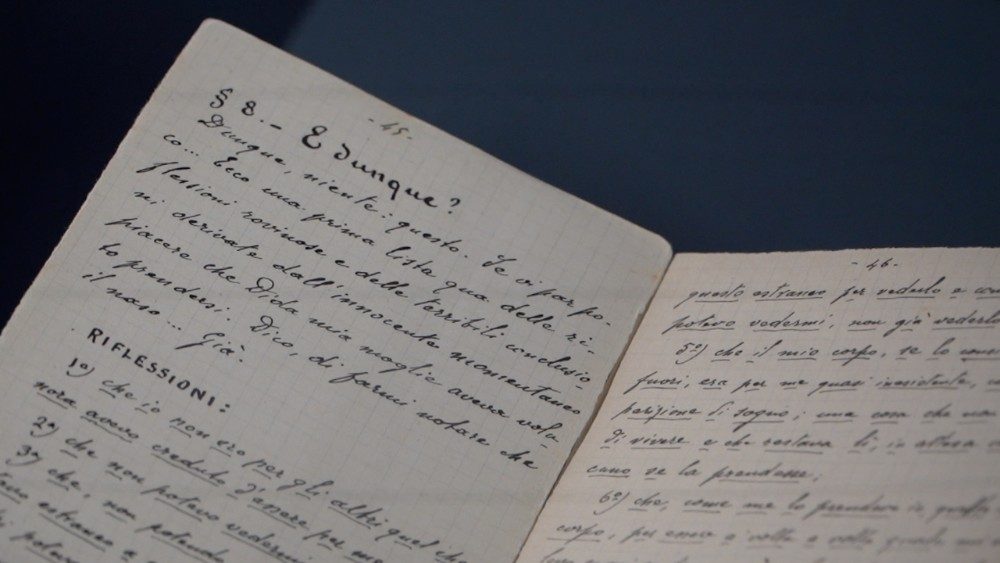 - 45 -
§ 8. - E dunque?
Dunque, niente: questo. Se vi par po-
co... Ecco una prima lista qua delle ri-
flessioni rovinose e delle terribili conclusio
ni derivate dall'innocente momentaneo
piacere che Dida mia moglie aveva volu
to prendersi. Dico, di farmi notare che
il naso... Già.
RIFLESSIONI:
1º) che io non ero per gli altri quel che
nora avevo creduto d'essere per me
2º) che non potevo vedermi
3º) che, non potendo
estraneo a
- 46 -
questo estraneo per vederlo e
potevo vedermi, non già vederlo
5º) che il mio corpo, se lo
fuori, era per me quasi inesistente,
parizione di sogno; una cosa che non
di vivere e che restava lì, in attesa
cuno se la prendesse;
6º) che, come me lo prendevo io
corpo, per essere a volta a volta quale mi